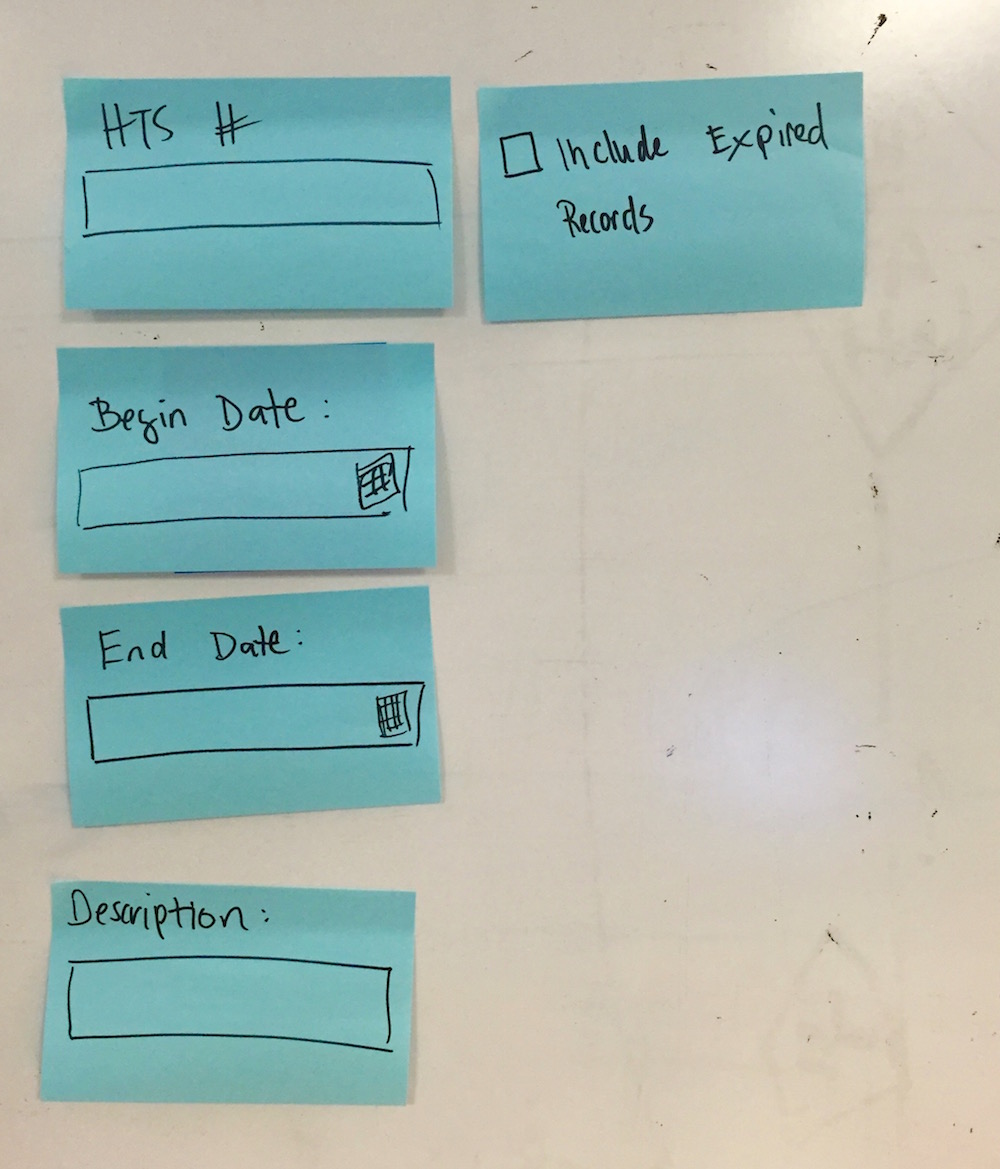 HTS #
Include Expired
Records
Begin Date:
End Date:
Description: